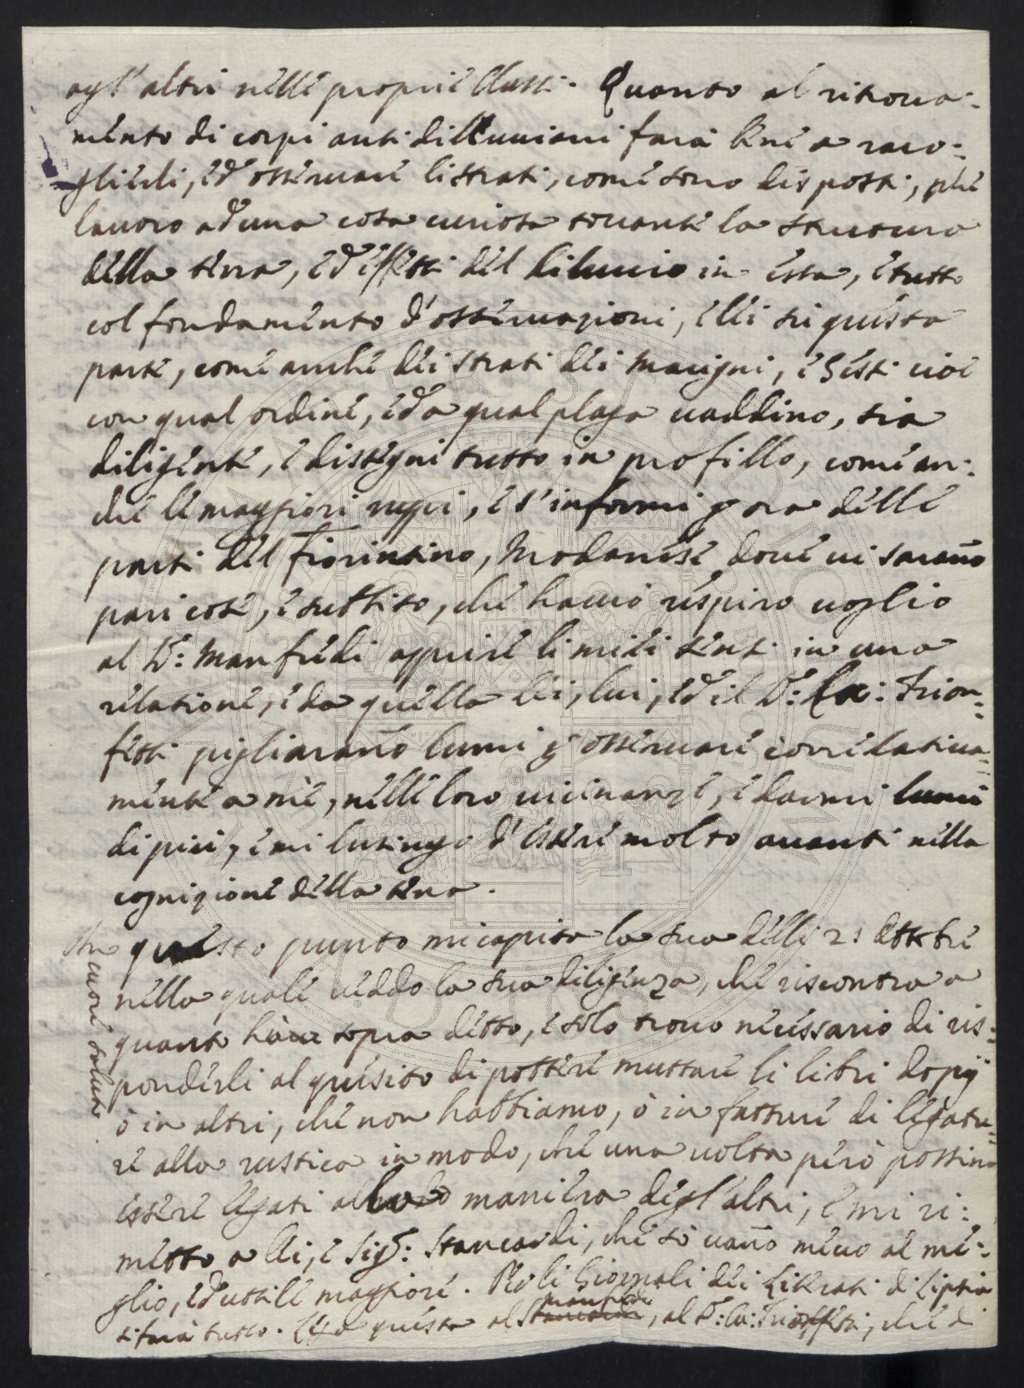 agl' altri nelle proprie Classi. Quanto al ritrova-
mento di corpi anti diluviani farà bene a racco-
glierli, ed osservare li strati, come sono disposti, p che
lavoro ad una cosa curiosa tocante la struttura
della terra, ed effetti del diluvio in essa, e tutto
col fondamento d'osservazioni, e lei in questa
parte, come anche dei strati dei Macigni, e Gessi cioè
con qual ordine, ed a qual plaga vaddino, sia
diligente, e dissegni tutto in profillo, come an-
che le maggiori rupi, e s'informi p ora delle
parti del Fiorintino, Modanese dove vi saranno
pari cose, e subbito, che havrò respiro voglio
al Dr: Manfredi aprire li miei senti in una
relatione, e da quella lei, lui, ed il Dr: Trion-
fetti pigliaranno lumi p osservare correlativa-
mente a me, nelle loro vicinanze, e darmi lumi
di piu, e mi lusingo d'essere molto avanti nella
cognizione della terra.
questo punto mi capita la sua delli 21 ottobre
nella quale veddo la sua diligenza, che riscontra a
quanto hò sopra detto, e solo trovo necessario di ris-
ponderli al quesito di pottere muttare li libri dopij
ò in altri, che non habbiamo, ò in fatture di legatu-
re alla rustica in modo, che una volta però possino
essere legati maniera degl'altri, e mi ri-
metto a lei, e Sigr: Stancardi, che sò vanno meco al me-
glio, ed uttile maggiore. Pe li Giornali dei Literati di Lipsia
si farà tutto. questa al Manfredi, al Dr: Trionfetti, che di